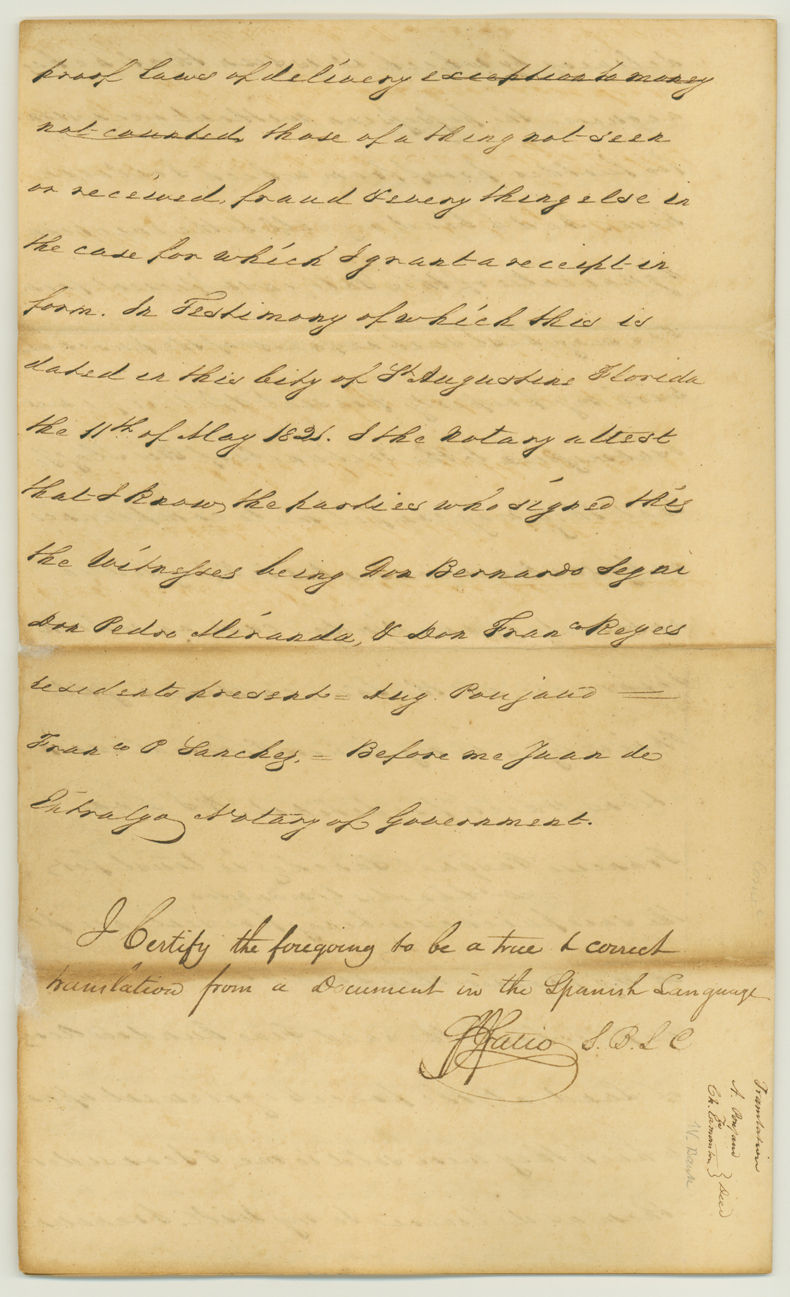 proof laws of delivery exception to money
not counted, those of a thing not seen
or received, fraud & every thing else in
the case for which I grant a receipt in
form. In Testimony of which this is
dated in this City of St Augustine Florida
the 11th of May 1821. I the Notary attest
that I know the parties who signed this
the Witnesses being Don Bernardo Segui
Don Pedro Miranda, & Don Franco Reyes
residents present = Aug. Poujaud =
Franco P Sanchez, = Before me Juan de
Entralgo Notary of Government.
I Certify the foregoing to be a true & correct
translation from a Document in the Spanish Language
Fatio S. B. L C
Translation
A. Poujaud
To
Ch.
} Deed
W. Bank